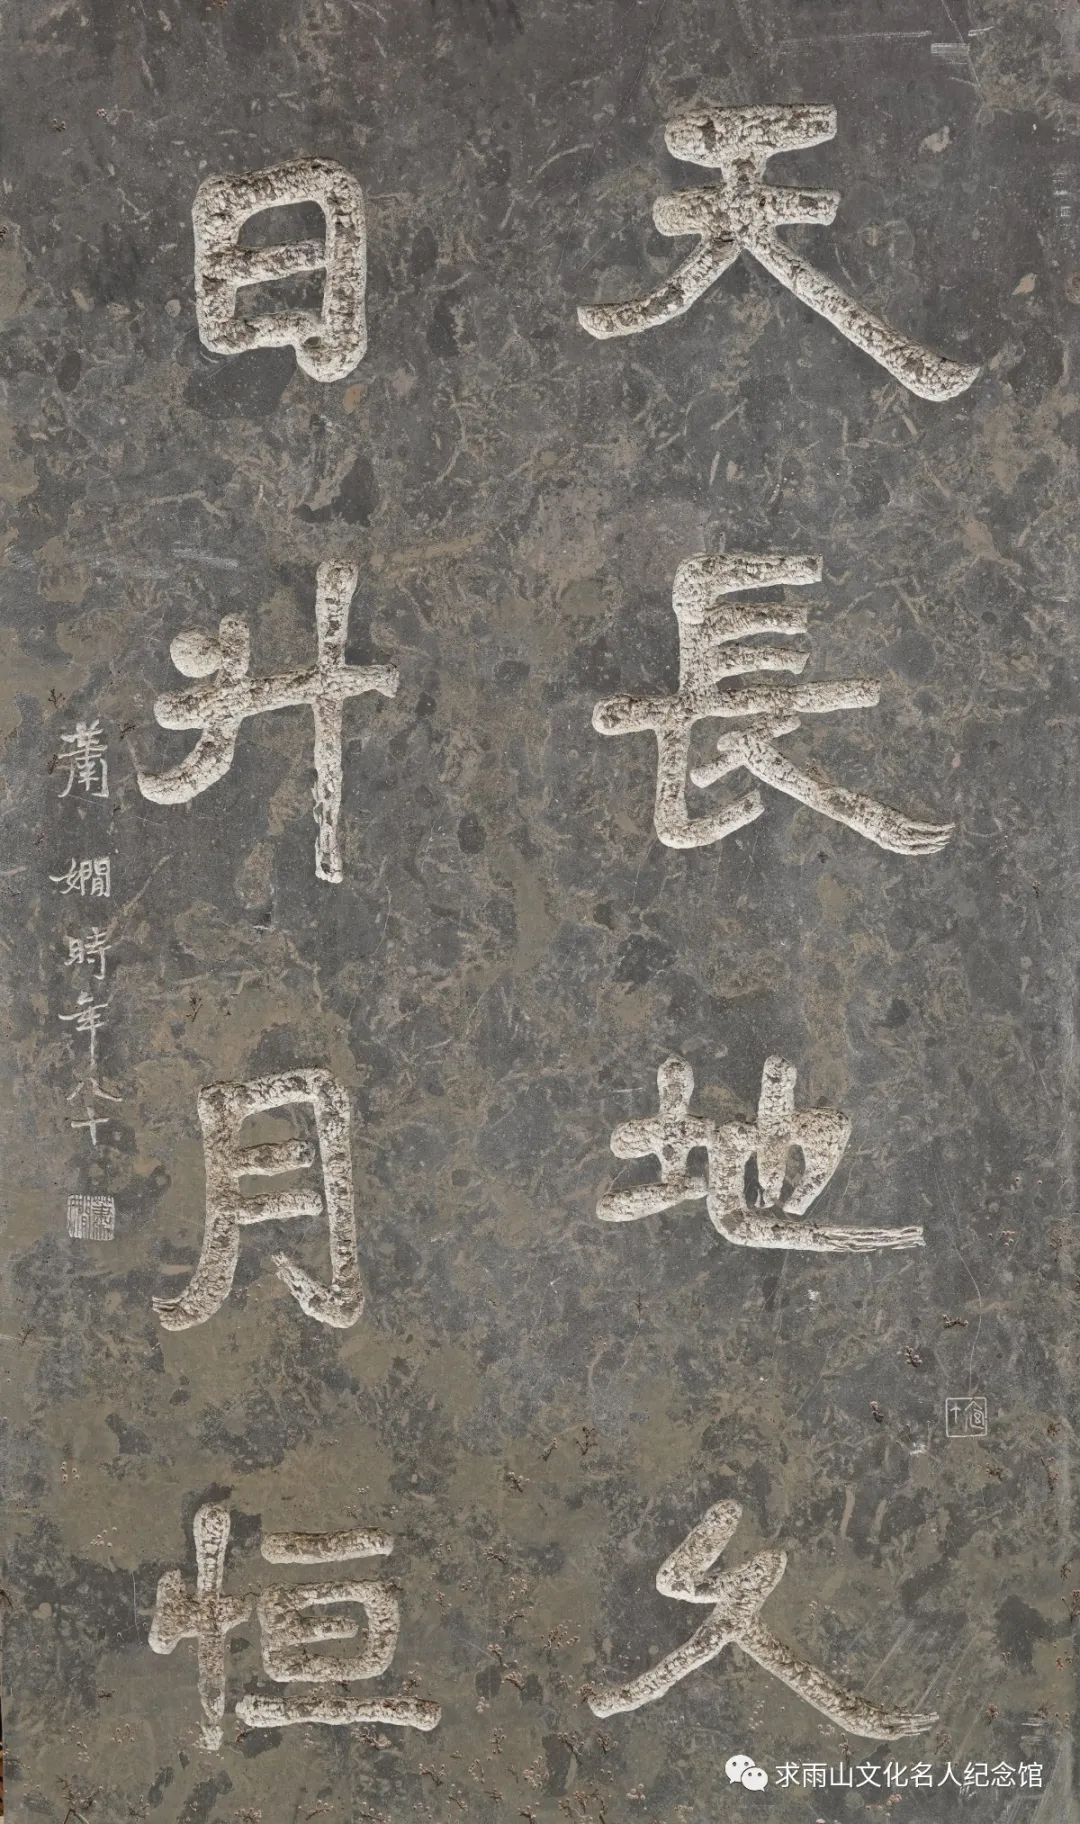 天長地久
日升月恒
蕭嫺時年八十
求雨山文化名人纪念馆